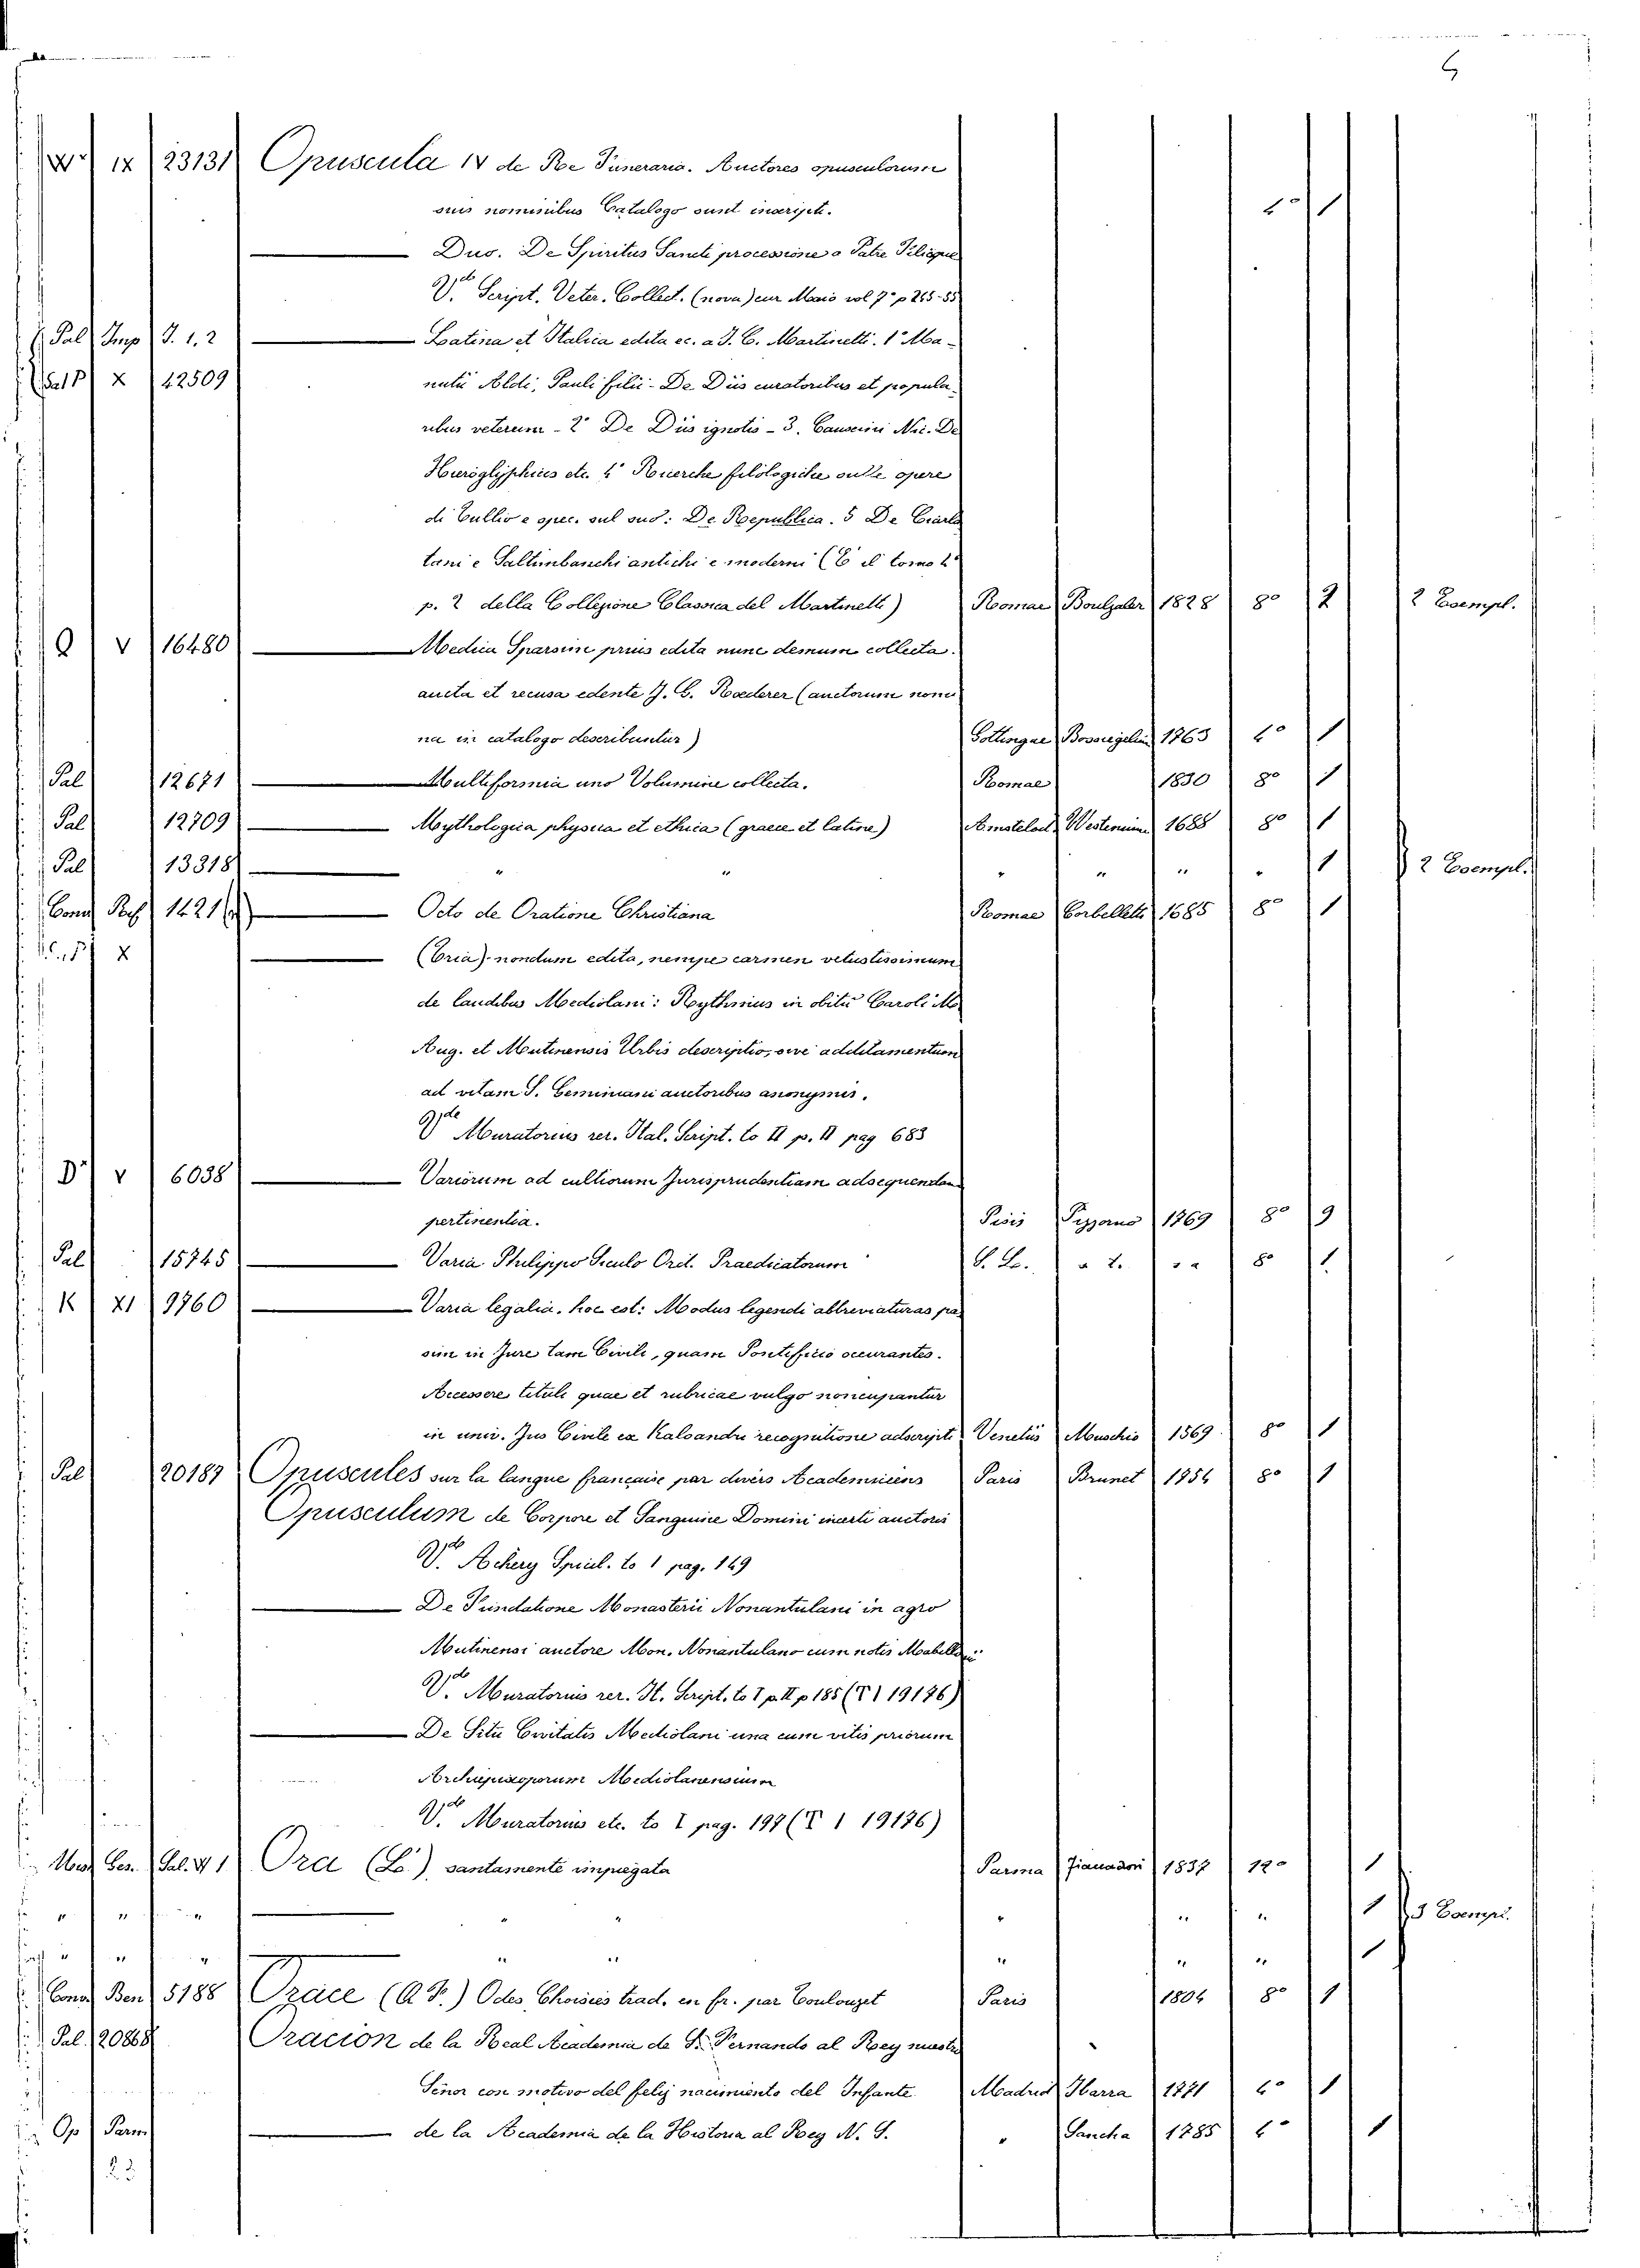 IX 23131 Opuscula IV de Re Funeraria. Auctores opusculorum
suis nominibus Catalogo sunt inscripti. 4° 1
Duo. De Spiritus Sancti processione a Patre Filioque
V.de Script. Veter. Collect. (nova) cur Maio vol 7° p
Pal Imp J. 1. 2 Latina et Italica edita ec. a J. C. Martinetti. 1° Ma-
X 42509 nutii Aldi, Pauli filii - De Diis curatoribus et popula-
ribus veterum - 2° De Diis ignotis - 3. Caussini Nic. De
Hieroglyphicis etc. 4° Ricerche filologiche sulle opere
di Tullio e spec. sul suo: De Republica. 5 De Ciarla
tani e Saltimbanchi antichi e moderni (È il tomo 4°
p. 2 della Collezione Classica del Martinetti) Romae Boulzaler 1828 8° 2 2 Esempl.
Q V 16480 Medica Sparsim prius edita nunc demum collecta.
aucta et recusa edente J. G. Roederer (auctorum nomi
na in catalogo describuntur) Gottingae 1763 4° 1
Pal 12671 Multiformia uno Volumine collecta. Romae 1830 8° 1
Pal 12709 Mythologica physica et ethica (graece et latine) Amstelod. 1688 8° 1
Pal 13318 " " " " " " 1 2 Esempl.
1421 Octo de Oratione Christiana Romae Corbelletti 1685 8° 1
X (Tria) nondum edita, nempe carmen vetustissimum
de laudibus Mediolani: Rythmus in obitu Caroli M.
Aug. et Mutinensis Urbis descriptio, sive additamentum
ad vitam S. Geminiani auctoribus anonymis.
V.de Muratorius rer. Ital. Script. to II p. II pag 683
D V 6038 Variorum ad cultiorum Jurisprudentiam adsequendam
pertinentia. Pisis Pizzorno 1769 8° 9
Pal 15745 Varia Philippo Siculo Ord. Praedicatorum S. L. a t. s a 8° 1
K XI 9760 Varia legalia, hoc est: Modus legendi abbreviaturas pas
sim in Jure tam Civili, quam Pontificio occurantes.
Accessere tituli quae et rubricae vulgo noncupantur
in univ. Jus Civile ex Kaloandri recognitione adscripti Venetiis Muschio 1569 8° 1
Pal 20189 Opuscules sur la langue française par divers Academiciens Paris Brunet 1754 8° 1
Opusculum de Corpore et Sanguine Domini incerti auctoris
V.de Achery Spicil. to 1 pag. 149
De Fundatione Monasterii Nonantulani in agro
Mutinensi auctore Mon. Nonantulano cum notis Mabilloni
V.de Muratorius rer. It. Script. to I p. II p 185 (T I 19176)
De Situ Civitatis Mediolani una cum vitis priorum
Archiepiscoporum Mediolanensium
V.de Muratorius etc. to I pag. 197 (T I 19176)
Sal. V 1 Ora (L') santamente impiegata Parma Fiaccadori 1837 12° 1
" " " " " " " " 1 3 Esempl.
" " " " " " " " 1
Ben 5188 Orace (Q. F.) Odes Choisies trad. en fr. par Coulonget Paris 1804 8° 1
Pal. 20868 Oracion de la Real Academia de S. Fernando al Rey nuestro
Señor con motivo del feliz nacimiento del Infante Madrid Ibarra 1771 4° 1
Op Parm de la Academia de la Historia al Rey N. S. " Sancha 1785 4° 1
23